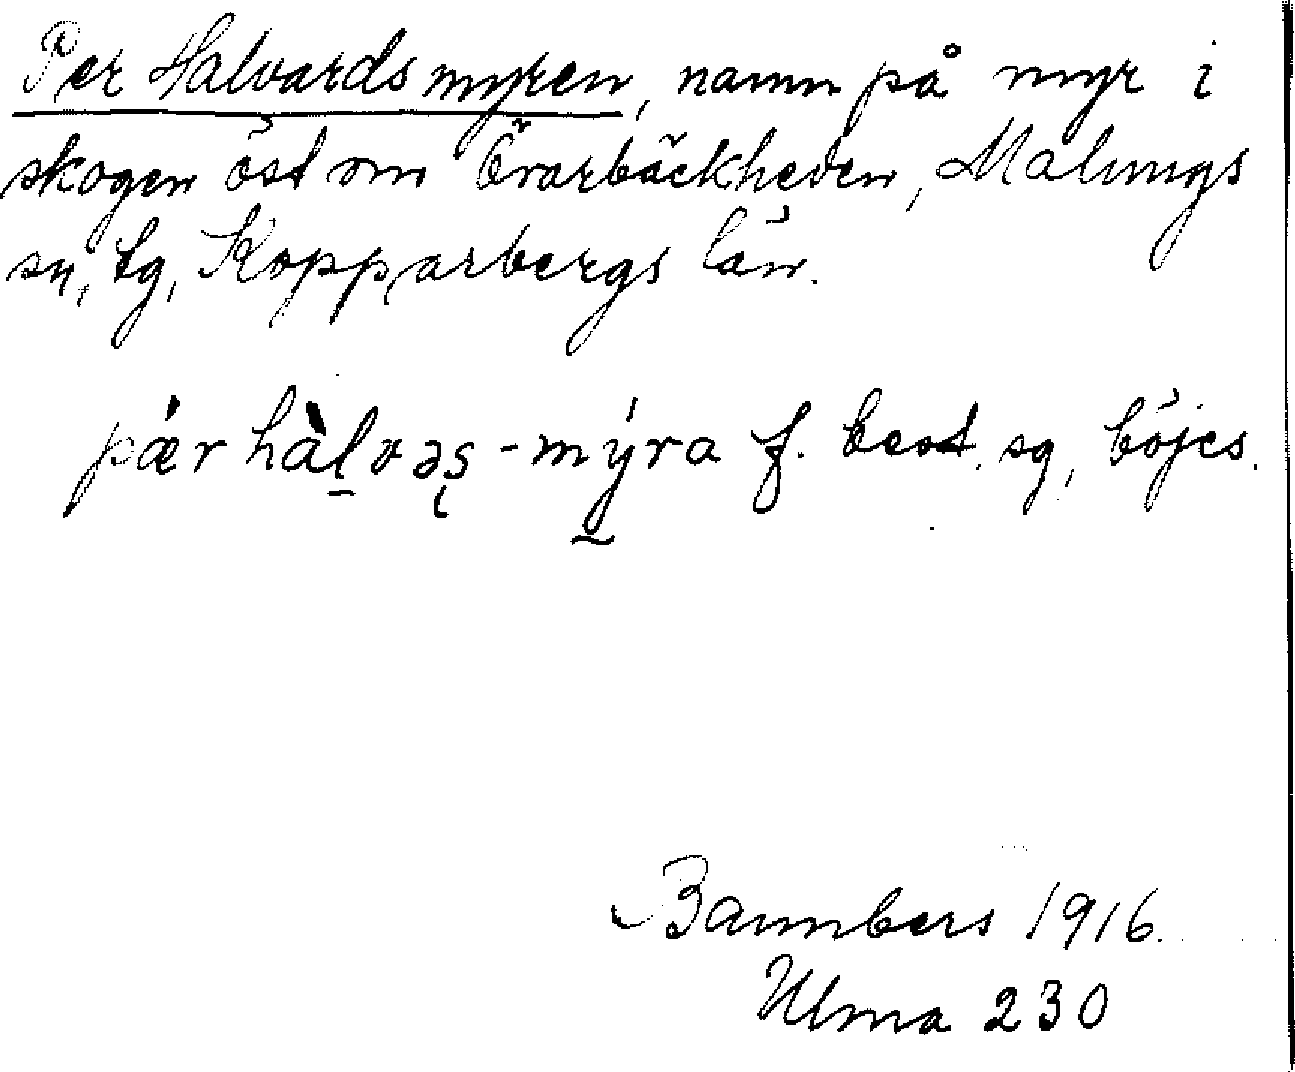 Per Halvardsmyren, namn på myr i
skogen öst om Örarbäckheden, Malungs
sn, tg, Kopparbergs län.
pǽr hàl̠vəʂ-mýra f. best. sg, böjes.
Bannbers 1916.
Ulma 230